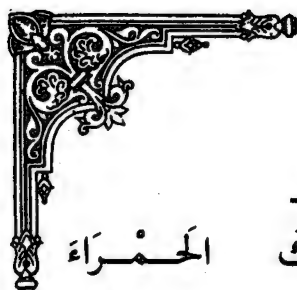 الحَمْرَاءَ